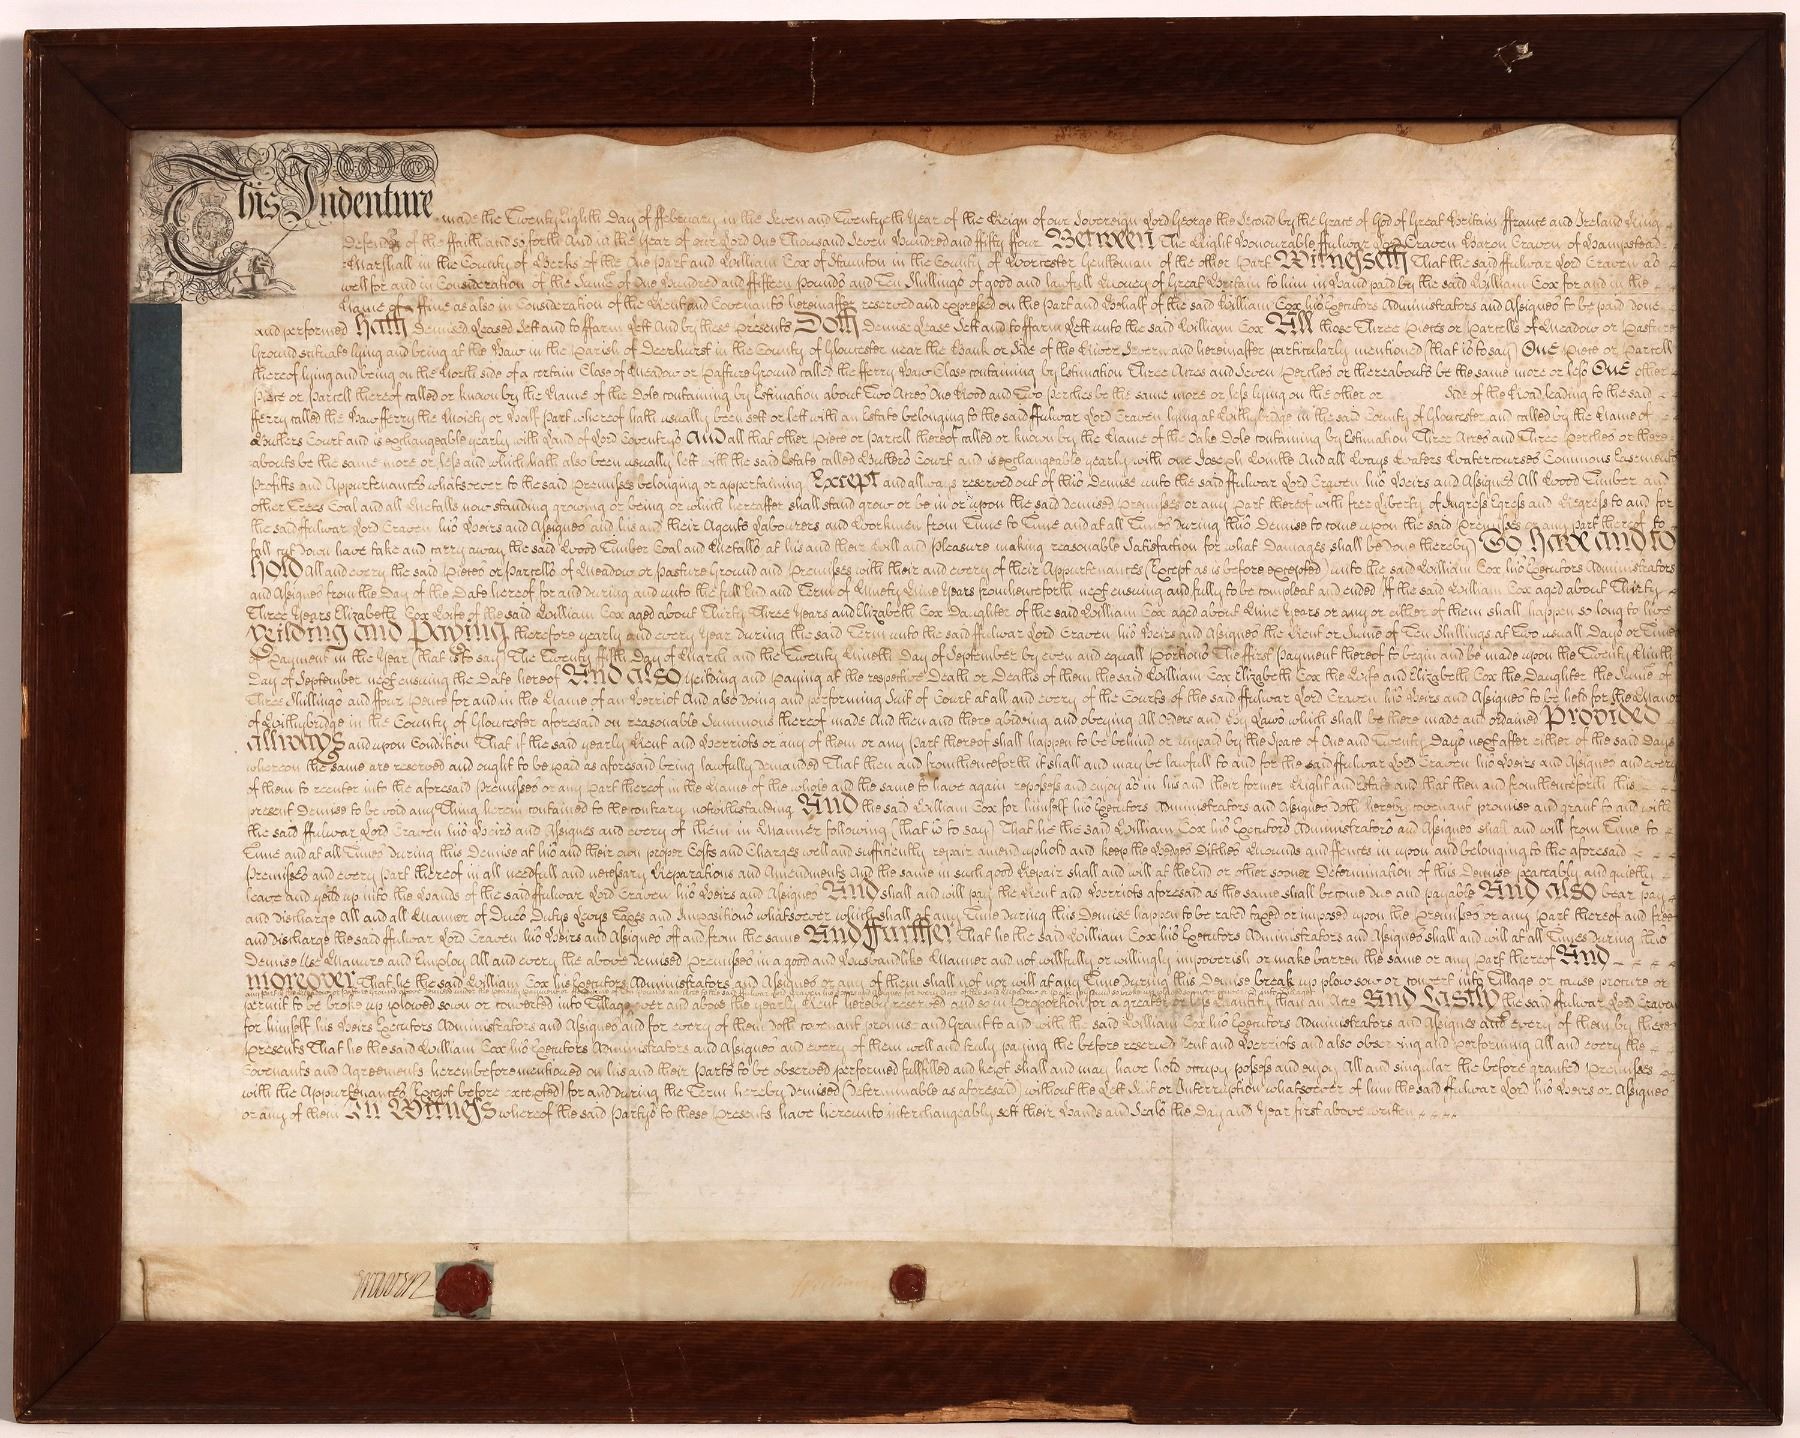 This Indenture made the Twenty Eighth Day of ffebruary in the Seven and Twentyeth Year of the Reign of our Sovereign Lord George the Second by the Grace of God of Great Britain ffrance and Ireland King
Defender of the ffaith and so forth And in the Year of our Lord One Thousand Seven Hundred and ffifty ffour Between The Right Honourable ffulwar Lord Craven Baron Craven of Hampstead
Marshall in the County of Berks of the One Part and William Cox of Staunton in the County of Worcester Gentleman of the other Part Witnesseth That the said ffulwar Lord Craven as
well for and in Consideration of the Sume of One Hundred and ffifteen Pounds and Ten Shillings of good and lawfull Money of Great Britain to him in Hand paid by the said William Cox for and in the
Name of a ffine as also in Consideration of the Rent and Covenants hereinafter reserved and expressed on the Part and Behalf of the said William Cox his Executors Administrators and Assignes to be paid done
and performed Hath Demised Leased Sett and to ffarm Lett And by these Presents Doth Demise Lease Sett and to ffarm Lett unto the said William Cox All those Three Pieces or Parcells of Meadow or Pasture
Ground scituate lying and being at the Haw in the Parish of Deerhurst in the County of Gloucester near the Bank or Side of the River Severn and hereinafter particularly mentioned (that is to say) One Piece or Parcell
thereof lying and being on the North side of a certain Close of Meadow or Pasture Ground called the fferry Haw Close containing by Estimation Three Acres and Seven Perches or thereabouts be the same more or less One other
Piece or Parcell thereof called or known by the Name of the Dole containing by Estimation about Two Acres One Rood and Two Perches be the same more or less lying on the other or Side of the Road leading to the said
fferry called the Haw fferry the Moiety or Half Part whereof hath usually been sett or lett with an Estate belonging to the said ffulwar Lord Craven lying at Withybridge in the said County of Gloucester and called by the Name of
Butlers Court and is exchangeable yearly with Land of Lord Coventrys And all that other Piece or Parcell thereof called or known by the Name of the Oake Dole containing by Estimation Three Acres and Three Perches or there
abouts be the same more or less and which hath also been usually lett with the said Estate called Butlers Court and is exchangeable yearly with one Joseph And all Ways Waters Watercourses Commons Easements
Profitts and Appurtenances whatsoever to the said Premisses belonging or appertaining Except and allways reserved out of this Demise unto the said ffulwar Lord Craven his Heirs and Assignes All Wood Timber and
other Trees Coal and all Mettalls now standing growing or being or which hereafter shall stand grow or be in or upon the said demised Premisses or any Part thereof with free Liberty of Ingress Egress and Regress to and for
the said ffulwar Lord Craven his Heirs and Assignes and his and their Agents Labourers and Workmen from Time to Time and at all Times during this Demise to come upon the said Premisses or any part thereof to
fall cut down have take and carry away the said Wood Timber Coal and Mettalls at his and their Will and Pleasure making reasonable Satisfaction for what Damages shall be done thereby) To have and to
hold All and every the said Pieces or Parcells of Meadow or Pasture Ground and Premisses with their and every of their Appurtenances (Except as is before excepted) unto the said William Cox his Executors Administrators
and Assignes from the Day of the Date hereof for and during and unto the full End and Term of Ninety Nine Years fromhenceforth next ensuing and fully to be compleat and ended If the said William Cox aged about Thirty
Three Years Elizabeth Cox Wife of the said William Cox aged about Thirty Three Years and Elizabeth Cox Daughter of the said William Cox aged about Nine Years or any or either of them shall happen so long to live
Yeilding and Paying therefore yearly and every Year during the said Term unto the said ffulwar Lord Craven his Heirs and Assignes the Rent or Sume of Ten Shillings at Two usuall Days or Times
of Payment in the Year (that is to say) The Twenty ffifth Day of March and the Twenty Nineth Day of September by even and equall Portions The first Payment thereof to begin and be made upon the Twenty Ninth
Day of September next ensuing the Date hereof And also yeilding and Paying at the respective Death or Deaths of them the said William Cox Elizabeth Cox the Wife and Elizabeth Cox the Daughter the Sume of
Three Shillings and ffour Pence for and in the Name of an Herriot And also doing and performing Suit of Court at all and every of the Courts of the said ffulwar Lord Craven his Heirs and Assignes to be held for the Manor
of Withybridge in the County of Gloucester aforesaid on reasonable Summons thereof made And then and there abiding and obeying All Orders and By Laws which shall be there made and ordained Provided
allways and upon Condition That if the said yearly Rent and Herriots or any of them or any Part thereof shall happen to be behind or unpaid by the Space of One and Twenty Days next after either of the said Days
whereon the same are reserved and ought to be paid as aforesaid being lawfully demanded That then and fromthenceforth it shall and may be lawfull to and for the said ffulwar Lord Craven his Heirs and Assignes and every
of them to reenter into the aforesaid Premisses or any part thereof in the Name of the whole and the same to have again repossess and enjoy as in his and their former Right and Estate and that then and fromthenceforth this
present Demise to be void any Thing herein contained to the contrary notwithstanding And the said William Cox for himself his Executors Administrators and Assignes doth hereby covenant promise and grant to and with
the said ffulwar Lord Craven his Heirs and Assignes and every of them in Manner following (that is to say) That he the said William Cox his Executors Administrators and Assignes shall and will from Time to
Time and at all Times during this Demise at his and their own proper Costs and Charges well and sufficiently repair amend uphold and keep the Hedges Ditches Mounds and ffences in upon and belonging to the aforesaid
Premisses and every part thereof in all needfull and necessary Reparations and Amendments And the same in such good Repair shall and will at the End or other sooner Determination of this Demise peaceably and quietly
leave and yeild up into the Hands of the said ffulwar Lord Craven his Heirs and Assignes And shall and will pay the Rent and Herriots aforesaid as the same shall become due and payable And also bear pay
and discharge All and all Manner of Dues Dutys Levys Taxes and Impositions whatsoever which shall at any Time during this Demise happen to be rated taxed or imposed upon the Premisses or any Part thereof and free
and discharge the said ffulwar Lord Craven his Heirs and Assignes off and from the same And ffurther That he the said William Cox his Executors Administrators and Assignes shall and will at all Times during this
Demise Use Manure and Employ All and every the above demised Premisses in a good and Husbandlike Manner and not willfully or willingly impoverish or make barren the same or any part thereof And
moreover That he the said William Cox his Executors Administrators and Assignes or any of them shall not nor will at any Time during this Demise break up plow sow or convert into Tillage or cause procure or
permit to be broke up plowed sown or converted into Tillage over and above the yearly Rent hereby reserved and so in Proportion for a greater or less Quantity than an Acre And Lastly the said ffulwar Lord Craven
for himself his Heirs Executors Administrators and Assignes and for every of them doth covenant promise and Grant to and with the said William Cox his Executors Administrators and Assignes and every of them by these
Presents That he the said William Cox his Executors Administrators and Assignes and every of them well and truly paying the before reserved Rent and Herriots and also observing and performing All and every the
Covenants and Agreements hereinbefore mentioned on his and their Parts to be observed performed fullfilled and kept shall and may have hold occupy possess and enjoy All and singular the before granted Premisses
with the Appurtenances (Except before excepted) for and during the Term hereby demised (determinable as aforesaid) without the Lett Suit or Interruption whatsoever of him the said ffulwar Lord Craven his Heirs or Assignes
or any of them In Witness whereof the said Partys to these Presents have hereunto interchangeably sett their Hands and Seals the Day and Year first above written
Craven